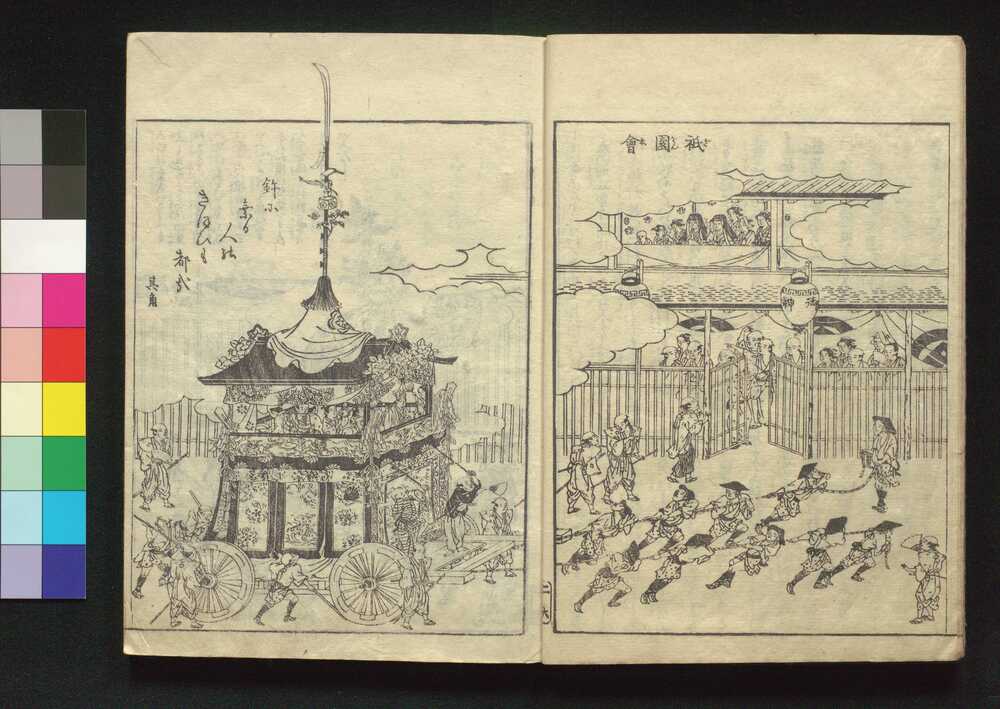 祇園會
鉾に
乗る
人の
きほひも
都哉
其角